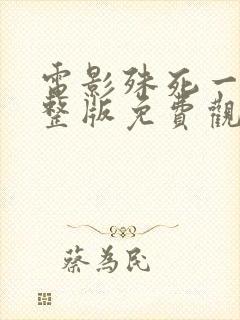 電影殊死一
整版免費觀
蔡為民